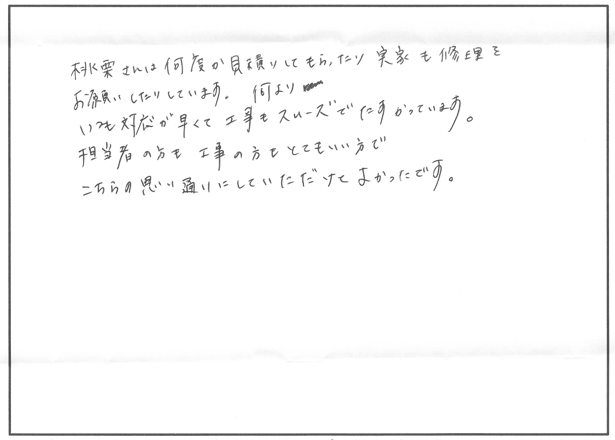 桃栗さんは何度か見積りしてもらったり実家も修理を
お願いしたりしています。何より
いつも対応が早くて工事もスムーズでたすかっています。
担当者の方も工事の方もとてもいい方で
こちらの思い通りにしていただけてよかったです。